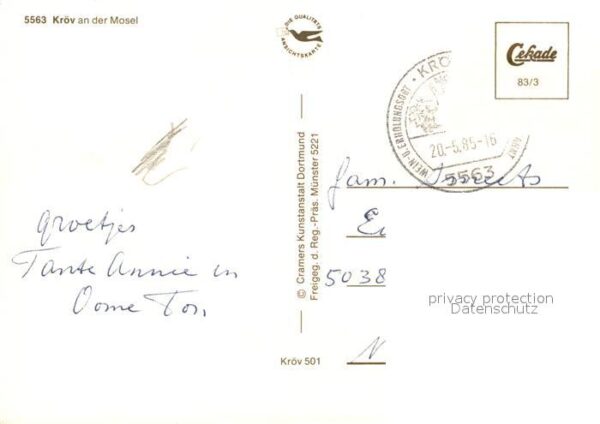 5563 Kröv an der Mosel
DIE QUALITÄTS
ANSICHTSKARTE
Cekade
83/3
KRÖ
WEIN-U. ERHOLUNGSORT
20.-5.85-16
5563
groetjes
Tante Annie en
Oome Ton.
© Cramers Kunstanstalt Dortmund
Freigeg. d. Reg.-Präs. Münster 5221
Kröv 501
Fam.
E
5038
N
privacy protection
Datenschutz